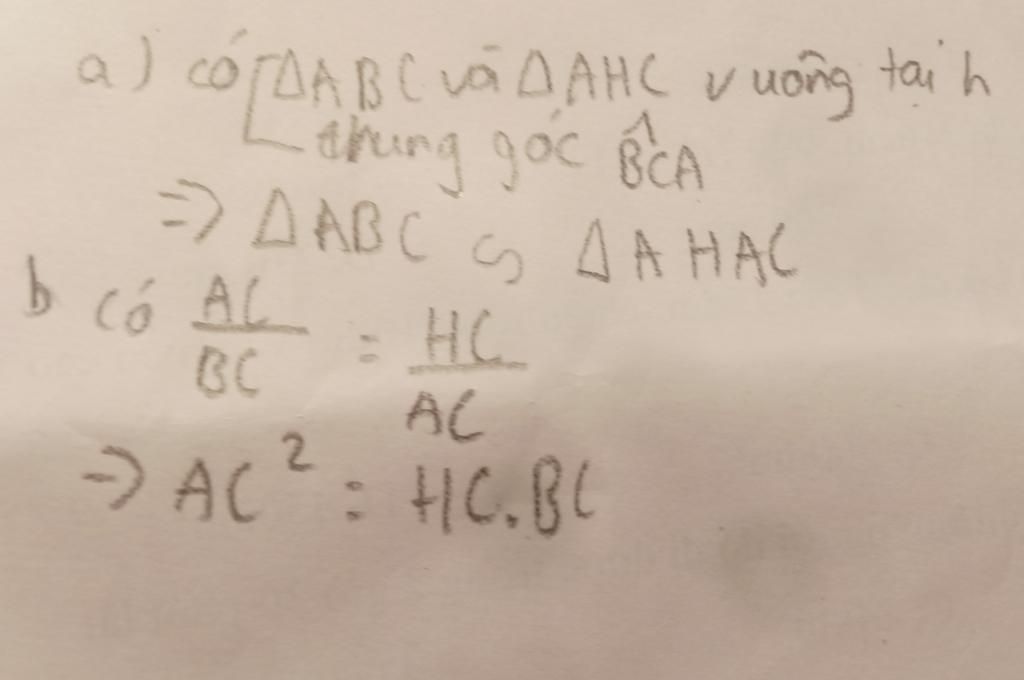 a) có [ΔABC và ΔAHC vuông tại h
chung góc B̂CA
=> ΔABC ᔕ ΔAHAC
b có AC/BC = HC/AC
=> AC² = HC.BC